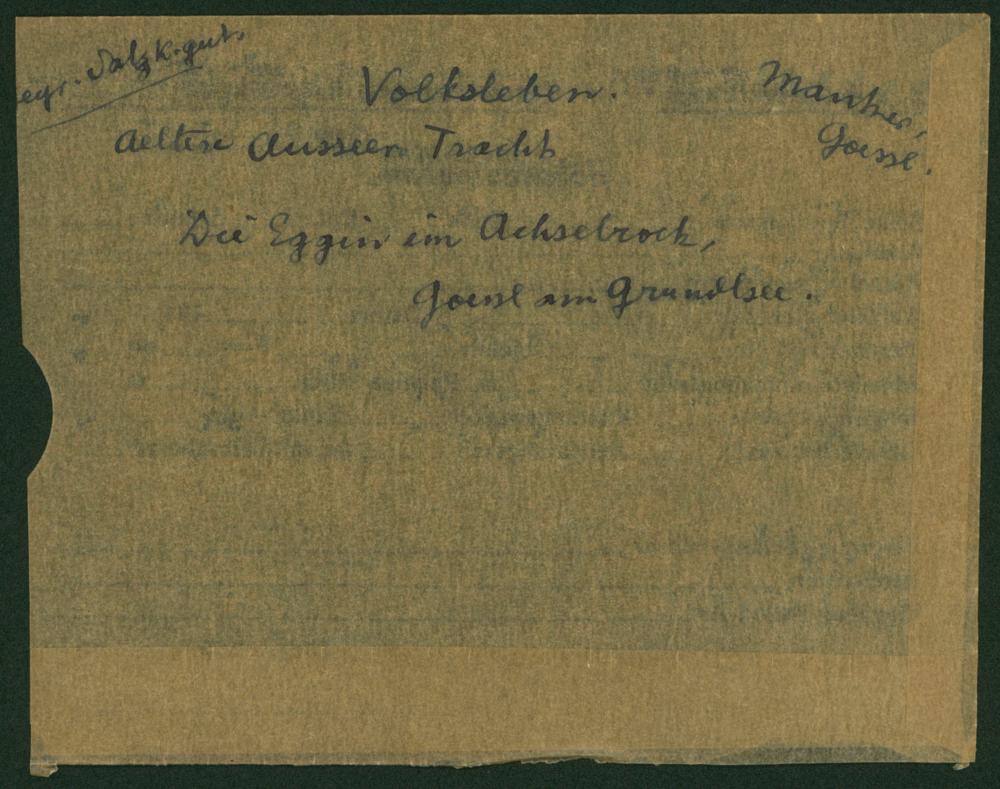 Salzk.gut.
Volksleben.
Goessl.
Aeltere Ausseer Tracht
Die Eggin im Achselrock,
Goessl am Grundlsee.